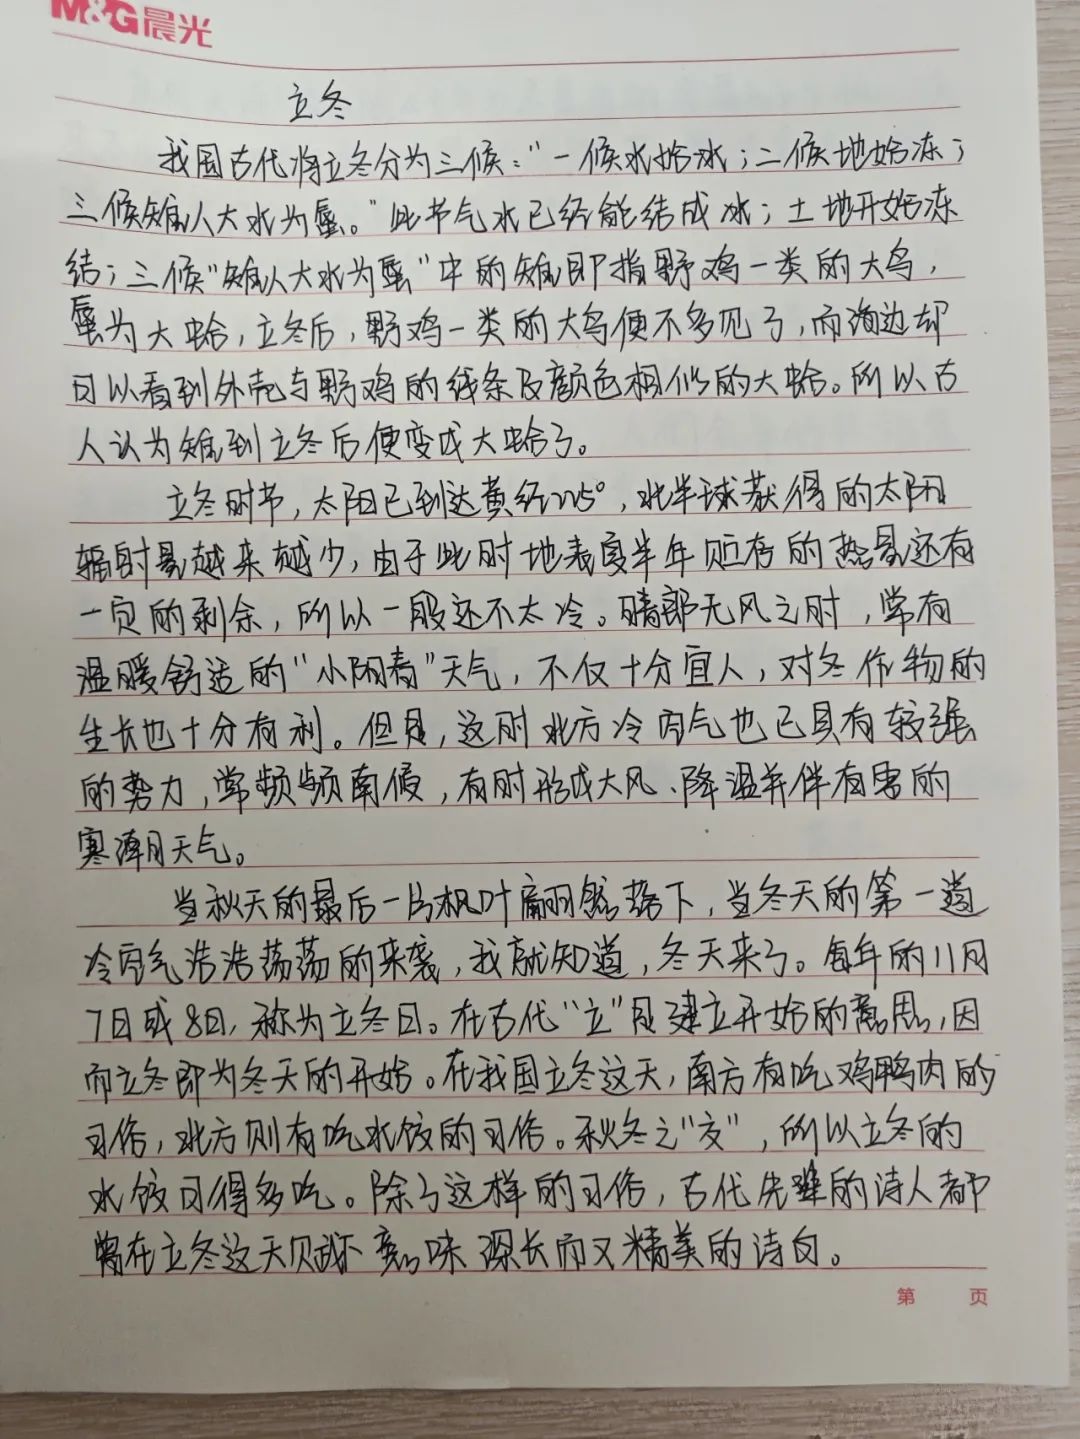 M&G晨光
立冬
我国古代将立冬分为三候："一候水始冰；二候地始冻；
三候雉入大水为蜃。"此节气水已经能结成冰；土地开始冻
结；三候"雉入大水为蜃"中的雉即指野鸡一类的大鸟，
蜃为大蛤，立冬后，野鸡一类的大鸟便不多见了，而海边却
可以看到外壳与野鸡的线条及颜色相似的大蛤。所以古
人认为雉到立冬后便变成大蛤了。
立冬时节，太阳已到达黄经225°，北半球获得的太阳
辐射量越来越少，由于此时地表夏半年贮存的热量还有
一定的剩余，所以一般还不太冷。晴朗无风之时，常有
温暖舒适的"小阳春"天气，不仅十分宜人，对冬作物的
生长也十分有利。但是，这时北方冷空气也已具有较强
的势力，常频频南侵，有时形成大风、降温并伴有雪的
寒潮天气。
当秋天的最后一片枫叶翩翩然落下，当冬天的第一道
冷空气浩浩荡荡的来袭，我就知道，冬天来了。每年的11月
7日或8日，称为立冬日。在古代"立"是建立开始的意思，因
而立冬即为冬天的开始。在我国立冬这天，南方有吃鸡鸭肉的
习俗，北方则有吃水饺的习俗。秋冬之"交"，所以立冬的
水饺可得多吃。除了这样的习俗，古代先雅的诗人都
曾在立冬这天赋下意味深长而又精美的诗句。
第 页